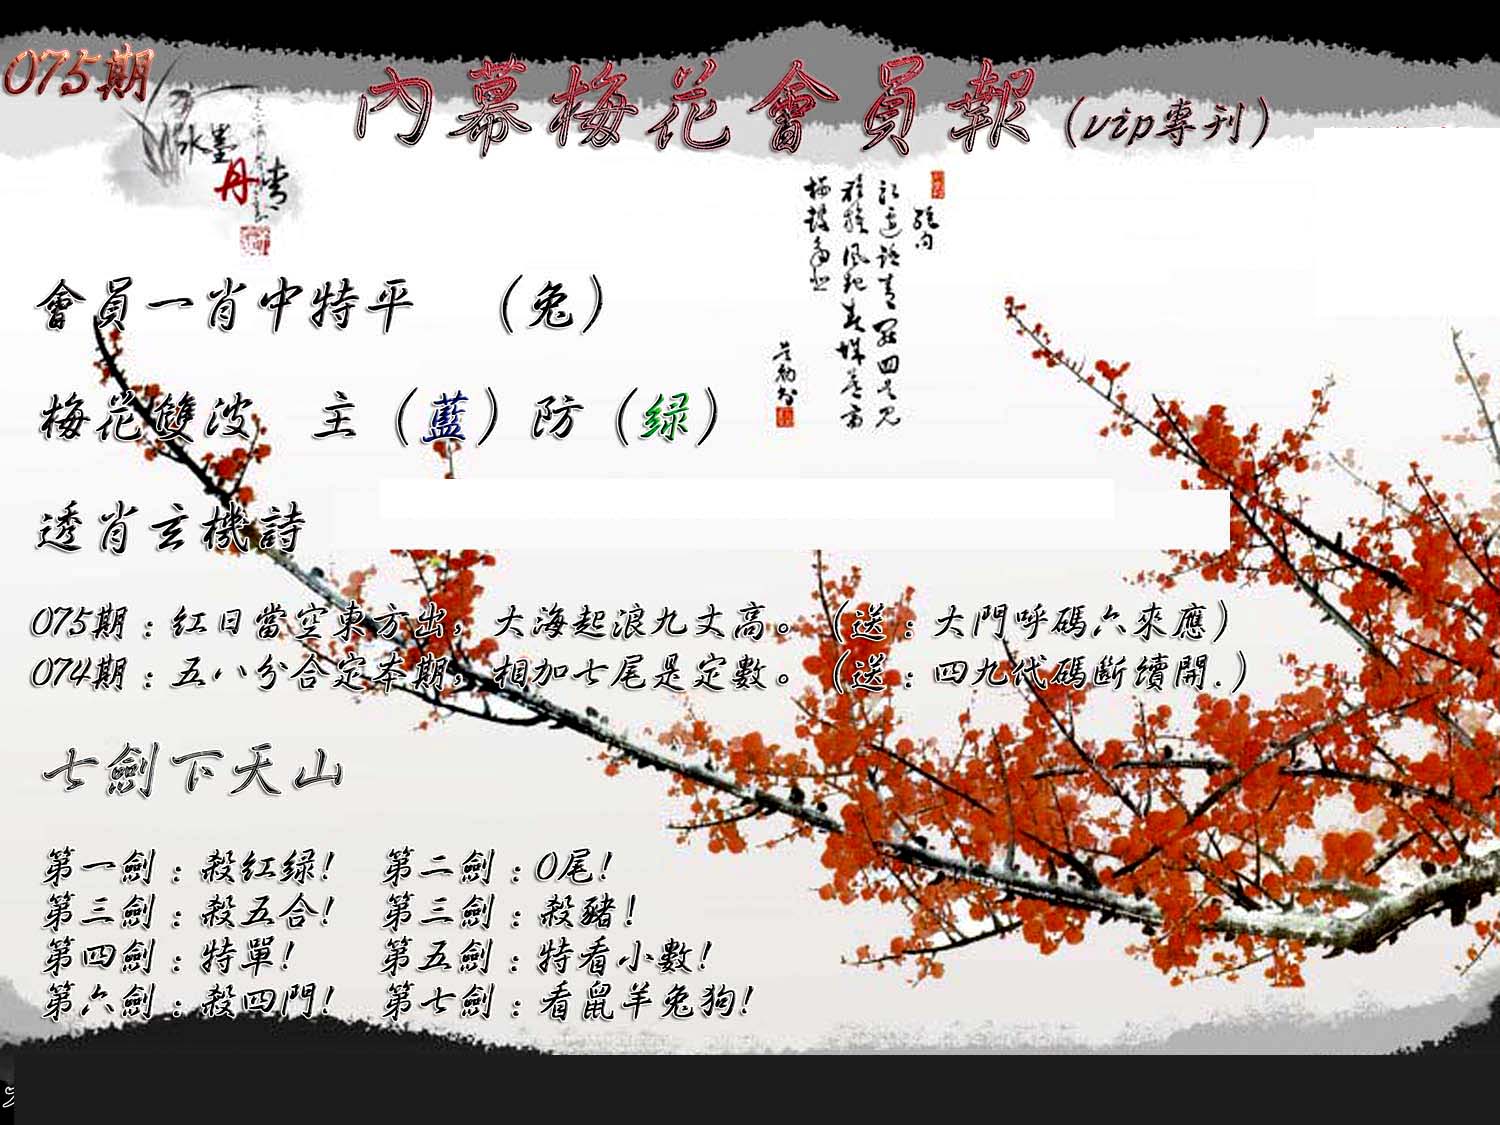 075期
內幕梅花會員報(vip專刊)
水墨
丹青
絕句
會員一肖中特平 (兔)
梅花雙波 主(藍)防(緑)
透肖玄機詩
075期:紅日當空東方出,大海起浪九丈高。(送:大門呼碼六來應)
074期:五八分合定本期,相加七尾是定數。(送:四九代碼斷續開.)
七劍下天山
第一劍:殺紅緑! 第二劍:0尾!
第三劍:殺五合! 第三劍:殺豬!
第四劍:特單! 第五劍:特看小數!
第六劍:殺四門! 第七劍:看鼠羊兔狗!